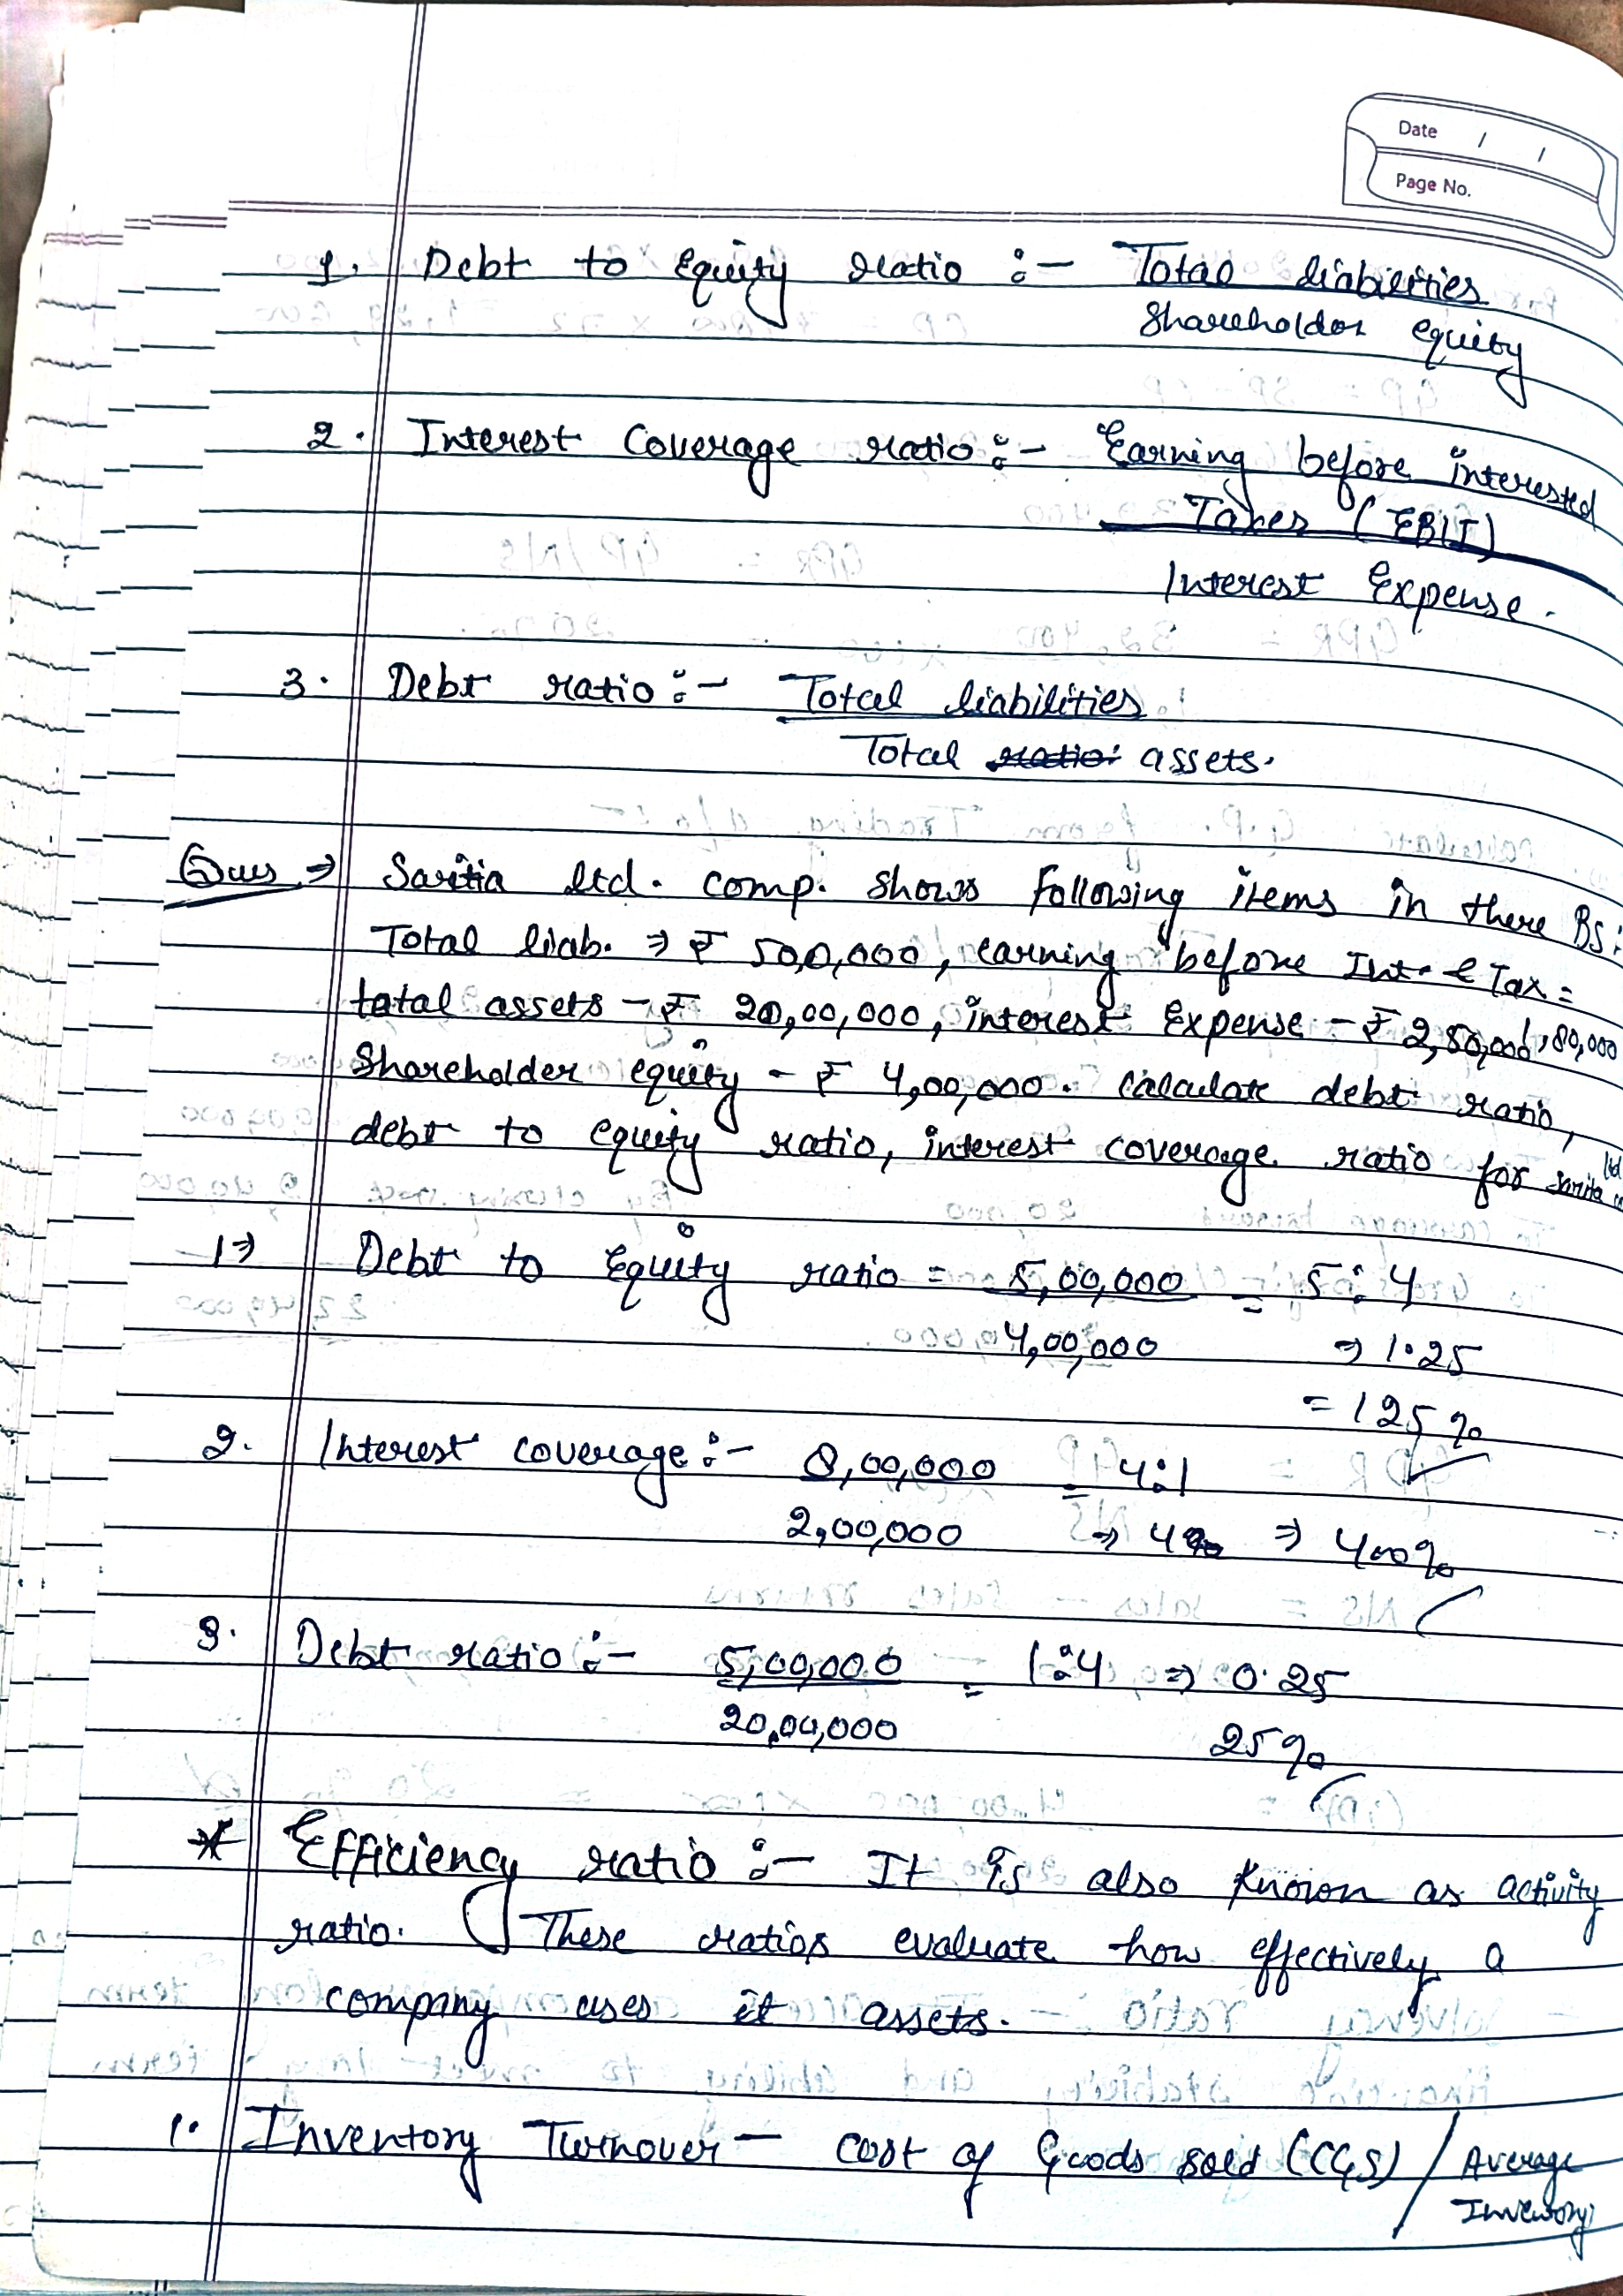 Date / /
Page No.
1. Debt to Equity ratio :- Total liabilities
Shareholder equity
2. Interest Coverage ratio :- Earning before interested
Taxes (EBIT)
Interest Expense.
3. Debt ratio :- Total liabilities
Total ratio assets.
Ques ⇒ Saritia ltd. comp. shows following items in there BS:
Total liab. ⇒ ₹ 500,000, earning before Int. & Tax =
total assets - ₹ 20,00,000, interest Expense - ₹ 2,50,000, 80,000
Shareholder equity - ₹ 4,00,000. Calculate debt ratio,
debt to equity ratio, interest coverage ratio for Sarita ltd
1⇒ Debt to Equity ratio = 5,00,000 = 5:4
4,00,000 ⇒ 1.25
= 125%
2. Interest coverage :- 8,00,000 = 4:1
2,00,000 ⇒ 4% ⇒ 400%
3. Debt ratio :- 5,00,000 = 1:4 ⇒ 0.25
20,00,000 25%
* Efficiency ratio :- It is also known as activity
ratio. These ratios evaluate how effectively a
company uses it assets.
1. Inventory Turnover - cost of Goods sold (CGS) / Average
Inventory